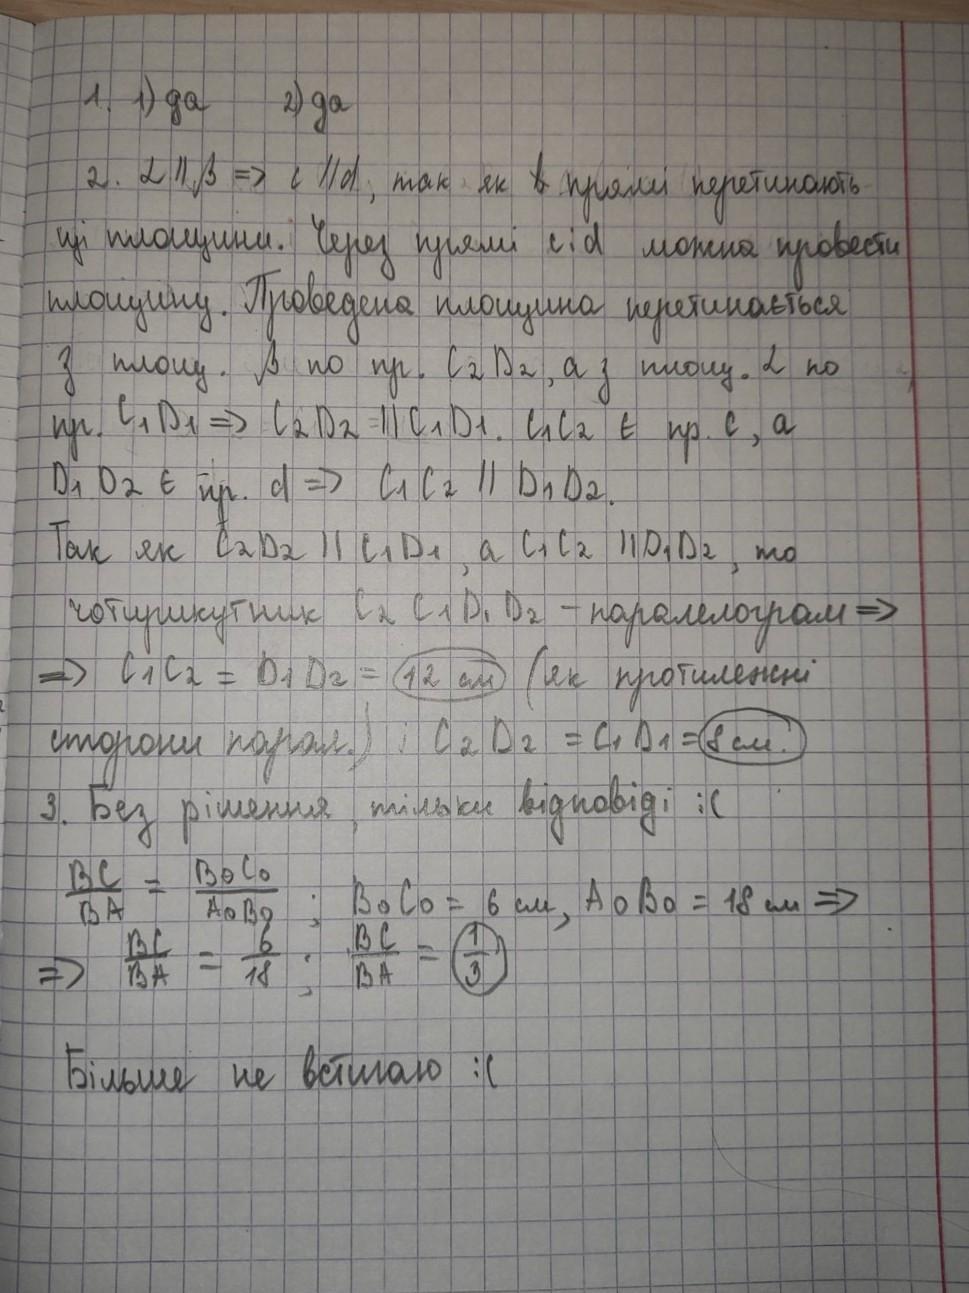 1. 1) да 2) да
2. α || β => c || d, так як в прямі перетинають
ці площини. Через прямі c і d можна провести
площину. Проведена площина перетинається
з площ. β по пр. C₂D₂, а з площ. α по
пр. C₁D₁ => C₂D₂ || C₁D₁. C₁C₂ ∈ пр. c, а
D₁D₂ ∈ пр. d => C₁C₂ || D₁D₂.
Так як C₂D₂ || C₁D₁, а C₁C₂ || D₁D₂, то
чотирикутник C₂C₁D₁D₂ – паралелограм =>
=> C₁C₂ = D₁D₂ = 12 см (як протилежні
сторони парал.) ; C₂D₂ = C₁D₁ = 8 см.
3. Без рішення, тільки відповіді :(
BC/BA = B₀C₀/A₀B₀ ; B₀C₀ = 6 см, A₀B₀ = 18 см =>
=> BC/BA = 6/18 ; BC/BA = 1/3
Більше не встигаю :(